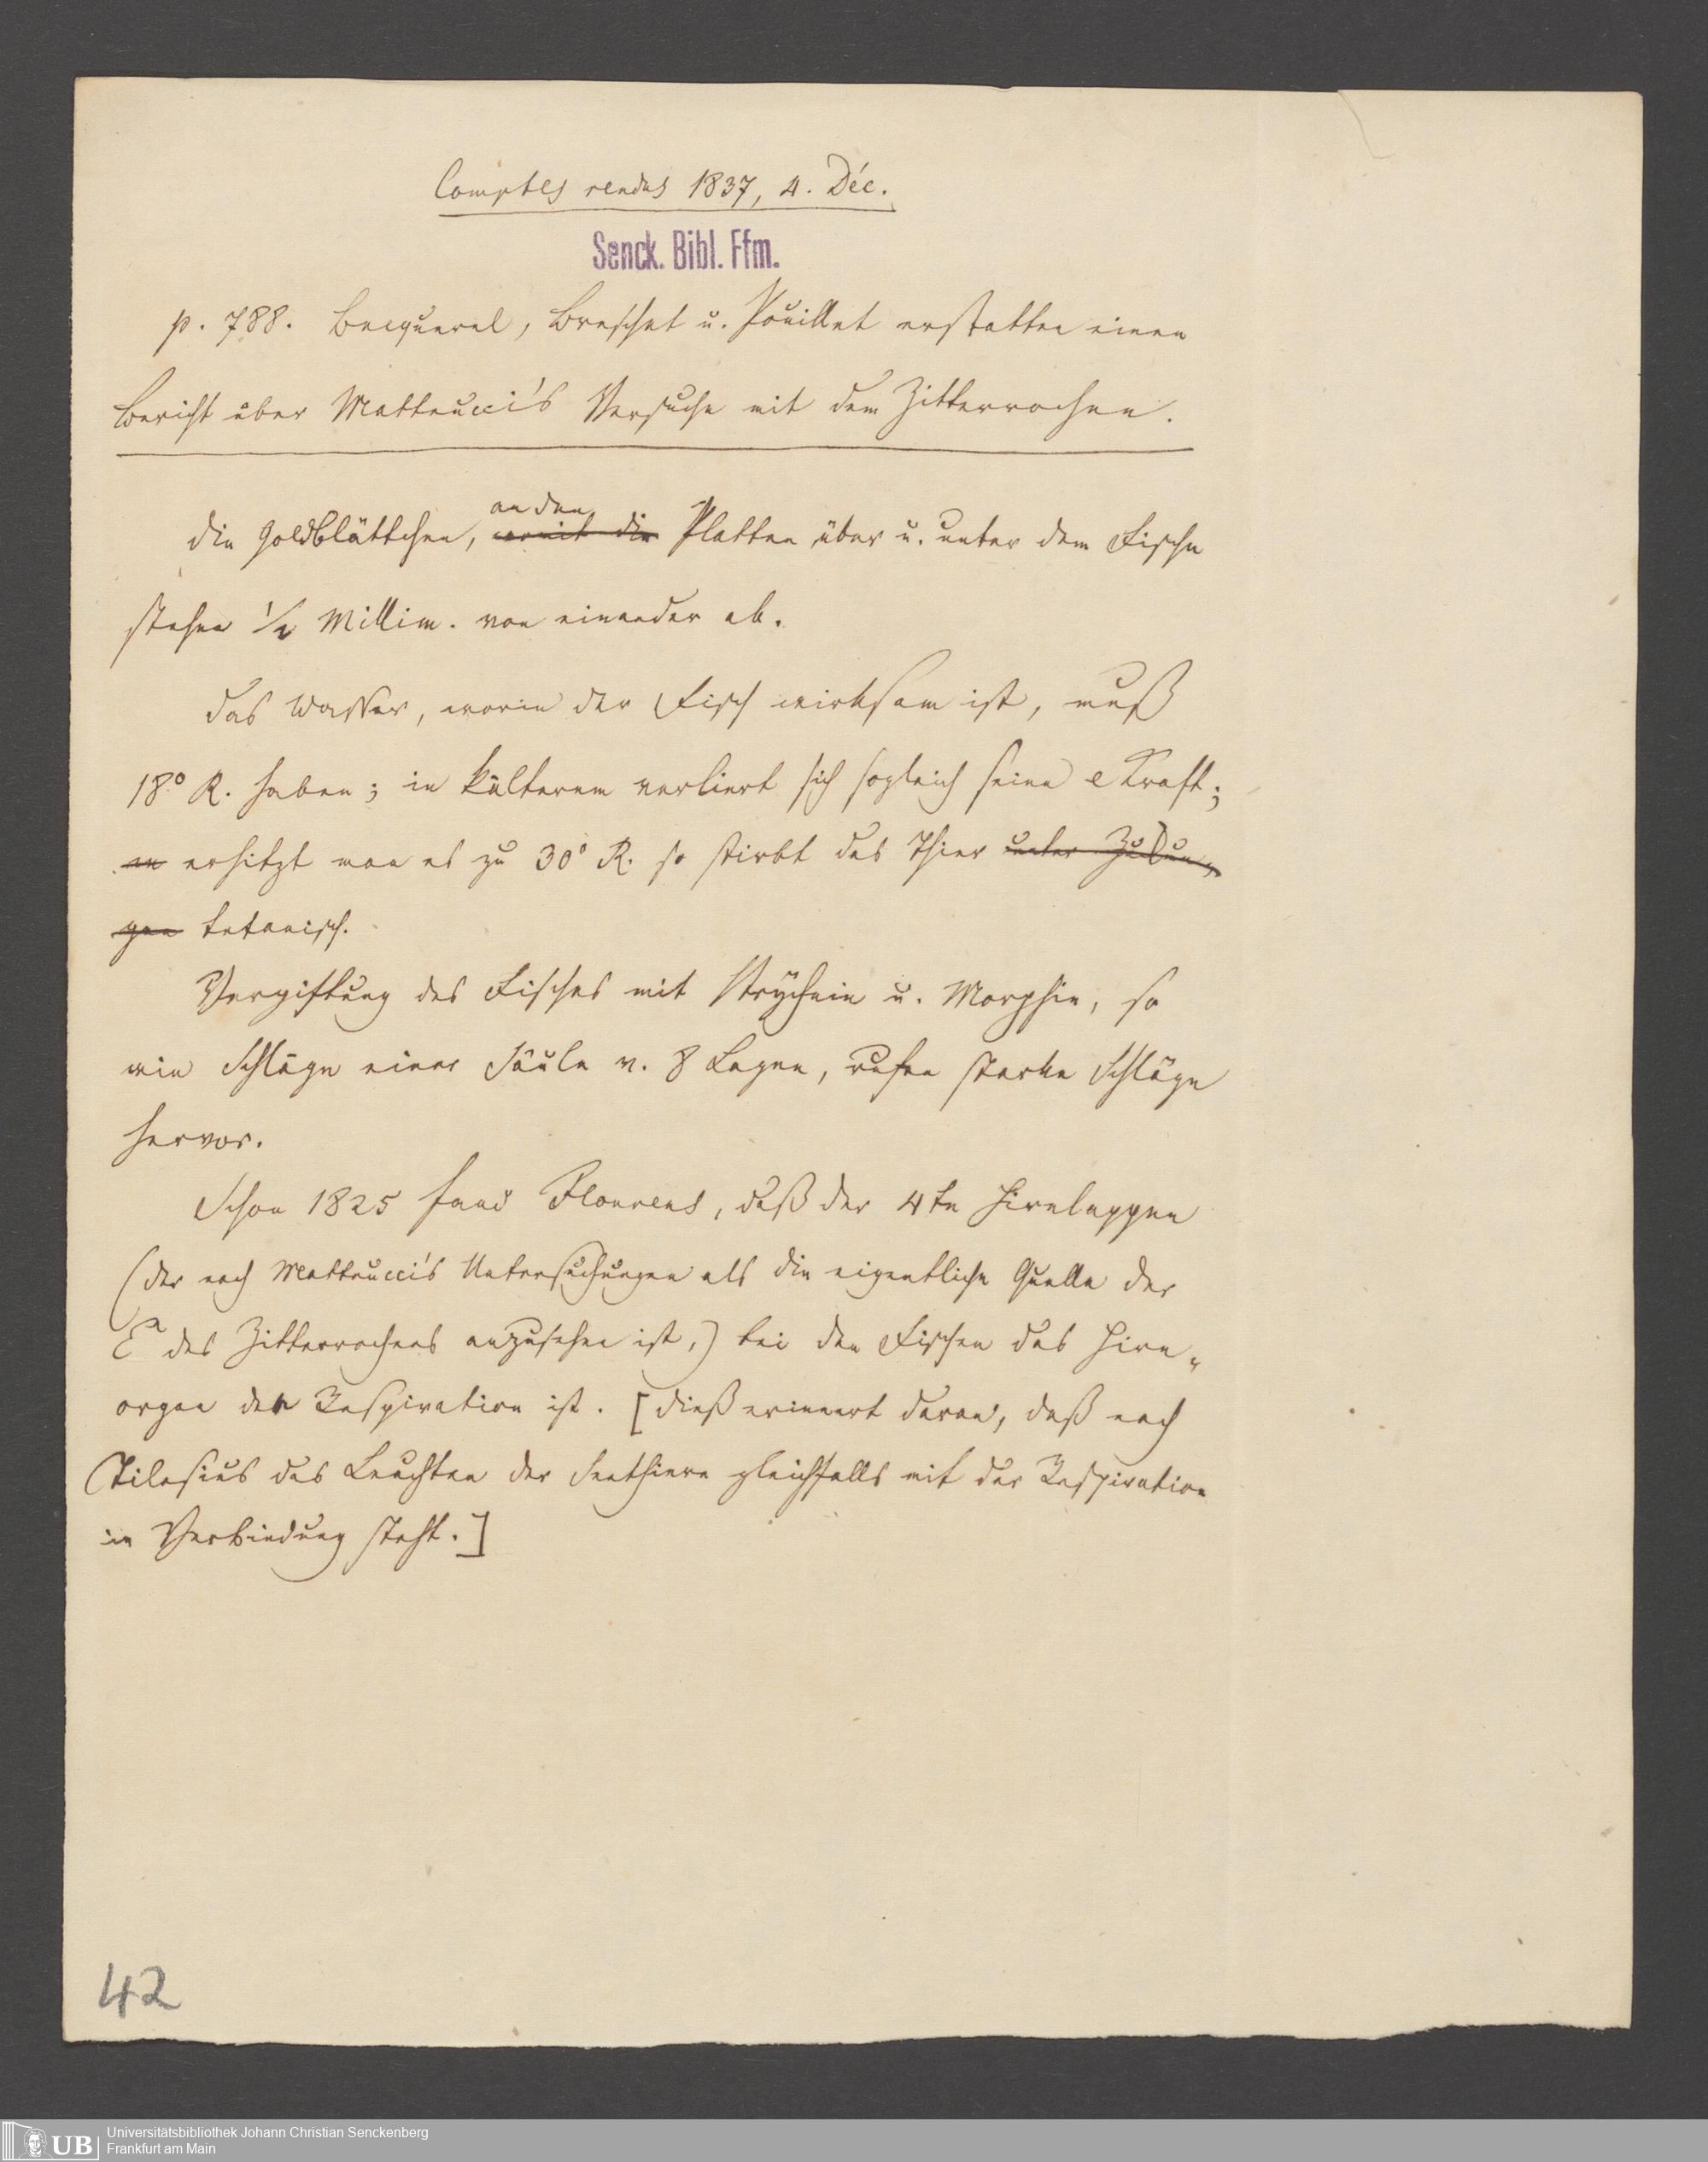 Comptes rendus 1837, 4. Déc.
Senck. Bibl. Ffm.
p. 788. Becquerel, Breschet u. Pouillet erstatten einen
Bericht über Matteucci's Versuche mit dem Zitterrochen.
an den
die Goldblättchen, womit die Platten über u. unter dem Fische
stehen 1/2 Millim. von einander ab.
das Wasser, worin der Fisch wirksam ist, muß
18° R. haben; in kälterem verliert sich sogleich seine e Kraft;
erhitzt man es zu 30° R. so stirbt das Thier unter Zuckun-
gen tetanisch.
Vergiftung des Fisches mit Strychnin u. Morphin, so
wie Schläge einer Säule v. 8 Lagen, rufen starke Schläge
hervor.
Schon 1825 fand Flourens, daß der 4te Hirnlappen
(der nach Matteucci's Untersuchungen als die eigentliche Quelle der
E des Zitterrochens anzusehen ist,) bei den Fischen das Hirn-
organ der Respiration ist. [dieß erinnert daran, daß nach
Tilesius das Leuchten der Seethiere gleichfalls mit der Respiration
in Verbindung steht.]
42
UB Universitätsbibliothek Johann Christian Senckenberg
Frankfurt am Main